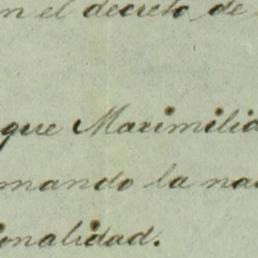 n el decreto de
que Maximilia
mando la na
onalidad.